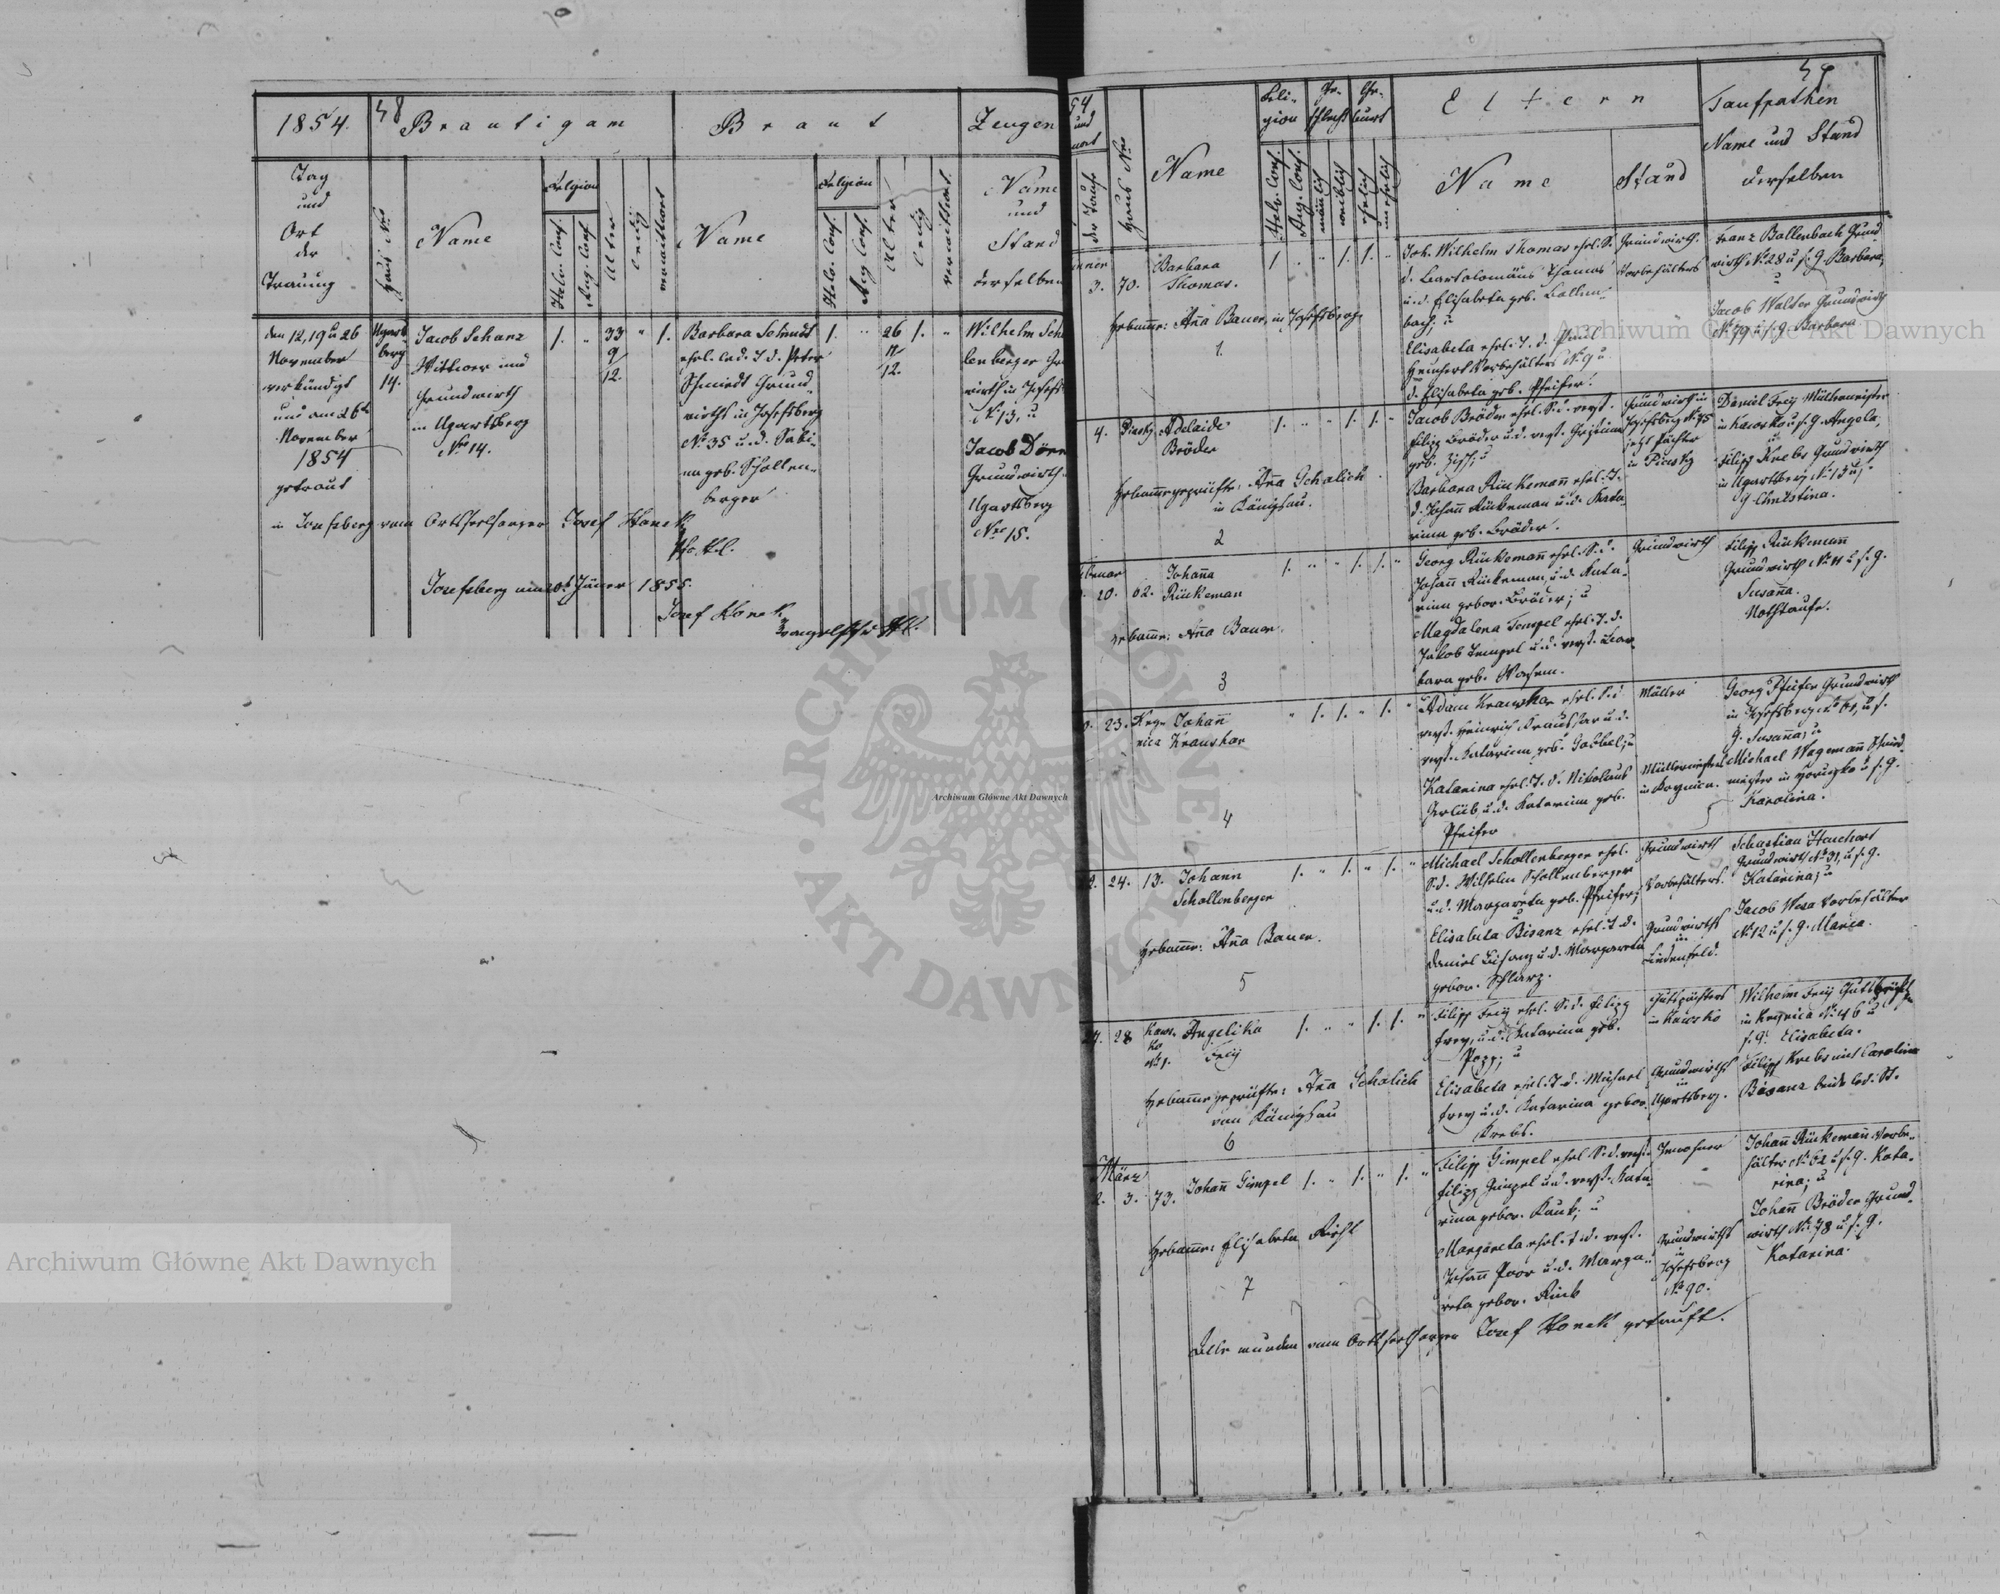 48
1854.
Bräutigam
Braut
Zeugen
Tag
und
Ort
der
Trauung
Haus Nro
Name
Religion
Helv. Conf.
Aug. Conf.
Alter
ledig
verwittwet
Name
Religion
Helv. Conf.
Aug. Conf.
Alter
ledig
verwittwet.
Name
und
Stand
derselben
den 12, 19 u 26
November
verkündigt
und am 26t
November
1854
getraut
Ugarts
berg
14.
Jacob Schanz
Wittwer und
Grundwirth
in Ugartsberg
Nro 14.
1. " 33 " 1.
9/12.
Barbara Schmidt
ehel. led. T. d. Peter
Schmidt Grund-
wirths in Josefsberg
No 35 u. d. Sabi-
na geb. Schollen-
berger
1. " 26 1. "
12.
Wilhelm Schol
lenberger Gr
wirth in Josefs
No 13, u
Jacob Dörr
Grundwirth
Ugartsberg
Nro 15.
in Josefsberg vom Ortsseelsorger Josef Honek
Josefsberg am Jäner 1855.
Josef Honek
54
und
der Taufe
Haus Nro
Name
Reli-
gion
Ge-
schlecht
Ge-
burt
Helv. Conf.
Aug. Conf.
mänlich
weiblich
ehelich
unehelich
Eltern
Name
Stand
Taufpathen
Name und Stand
derselben
Jänner
3. 70.
Barbara
Thomas.
1. " " 1. 1. "
Joh. Wilhelm Thomas ehel. S.
d. Bartolomäus Thomas
u. d. Elisabeta geb. Bollen-
bach; u
Elisabeta ehel. T. d. Paul
Heuchert Vorbehälters No 9 u
d. Elisabeta geb. Pfeifer.
Grundwirth.
Vorbehälters
Franz Bollenbach Grund
wirth No 28 u s. G. Barbara,
u
Jacob Walter Grundwirth
No 79 u s. G. Barbara
Hebamme: Aña Bauer, in Josefsberg
1.
4.
Adelaide
Bröder
1. " " 1. 1. "
Jacob Bröder ehel. S. d. verst.
Filipp Bröder u. d. verst. Christina
geb. Zisch; u
Barbara Rückemañ ehel. T.
d. Johañ Rückeman u. d. Kata
rina geb. Bröder.
Grundwirth in
Josefsberg No 75
jetzt Pächter
in Piasky
Daniel Frey Mülhermeister
in Kawsko u s. G. Angela,
u
Filipp Krebs Grundwirth
in Ugartsberg No 13 u s.
G. Christina.
Hebamme geprüfte: Aña Schalich
in Königsau.
2
20. 62.
Johaña
Rückeman
1. " " 1. 1. "
Georg Rückemañ ehel. S. d.
Johañ Rückeman, u. d. Kata-
rina gebor. Bröder; u
Magdalena Tempel ehel. T. d.
Jakob Tempel u. d. verst. Bar-
bara geb. Wasem.
Grundwirth
Filipp Rückemañ
Grundwirth No 11 u s. G.
Susaña.
Nothtaufe.
Hebamme: Aña Bauer.
3
23.
Johañ
Kraushar
" 1. 1. " 1. "
Adam Kraushar ehel. S. d
verst. Heinrich Kraushar u. d.
verst. Katarina geb. Göbbel; u
Katarina ehel. T. d. Nikolaus
Gerlüb u. d. Katarina geb.
Pfeifer
Müller
Müllermeister
Georg Pfeifer Grundwirth
in Josefsberg No 61, u s.
G. Susaña; u
Michael Wagemañ Schmied-
meister in u s. G.
Karolina.
4
24. 13.
Johann
Schollenberger
1. " 1. " 1. "
Michael Schollenberger ehel.
S. d. Wilhelm Schollenberger
u. d. Margareta geb. Pfeifer;
u
Elisabeta Bisanz ehel. T. d.
Daniel Bisanz u. d. Margareta
gebor. Schlarz.
Grundwirth
Vorbehälters.
Grundwirths
in
Lindenfeld.
Sebastian Heuchert
Grundwirth No 31, u s. G.
Katarina; u
Jacob Wora Vorbehälter
No 12 u s. G. Maria.
Hebamme: Aña Bauer.
5
28
Kaws-
ko
No 1.
Angelika
Frey
1. " " 1. 1. "
Filipp Frey ehel. S. d. Filipp
Frey, u. d. Katarina geb.
Popp; u
Elisabeta ehel. T. d. Michael
Frey u. d. Katarina gebor.
Krebs.
Gutspächters
in Kawsko
Grundwirths
in
Ugartsberg.
Wilhelm Frey
in No 46 u
s. G. Elisabeta.
Filipp Krebs mit Carolina
Bisanz beide led. St.
Hebamme geprüfte: Aña Schalich
von Königsau
6
März
2. 3. 73.
Johañ Gimpel
1. " 1. " 1. "
Filipp Gimpel ehel S. d. verst.
Filipp Gimpel u. d. verst. Kata-
rina gebor. Kauk; u
Margareta ehel. T. d. verst.
Johañ Poor u. d. Marga-
reta gebor. Rink
Inwohner
Grundwirths
in
Josefsberg
No 90.
Johañ Rückemañ Vorbe-
hälter No 62 u s. G. Kata-
rina; u
Johañ Bröder Grund-
wirth No 78 u s. G.
Katarina.
Hebamme: Elisabeta Riehl
7
Alle wurden vom Ortsseelsorger Josef Honek getauft.
Archiwum Główne Akt Dawnych
Archiwum Główne Akt Dawnych
Archiwum Główne Akt Dawnych
ARCHIWUM GŁÓWNE
AKT DAWNYCH